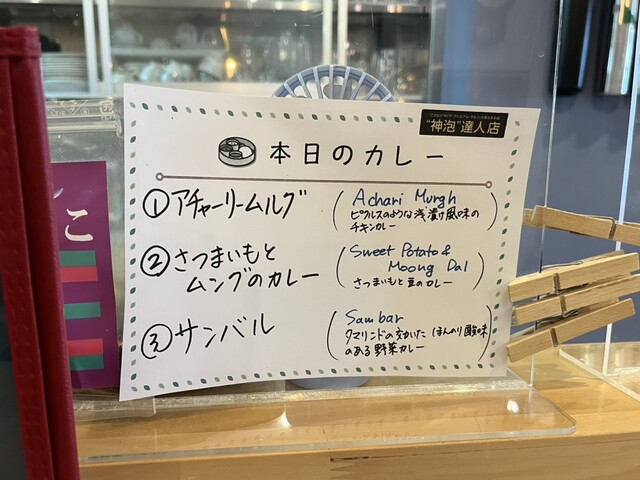 "神泡"達人店
本日のカレー
① アチャーリームルグ
(Achari Murgh
ピクルスのような浅漬け風味の
チキンカレー)
② さつまいもと
ムングのカレー
(Sweet Potato &
Moong Dal
さつまいもと豆のカレー)
③ サンバル
(Sambar
タマリンドの効いた ほんのり酸味
のある野菜カレー)
こ